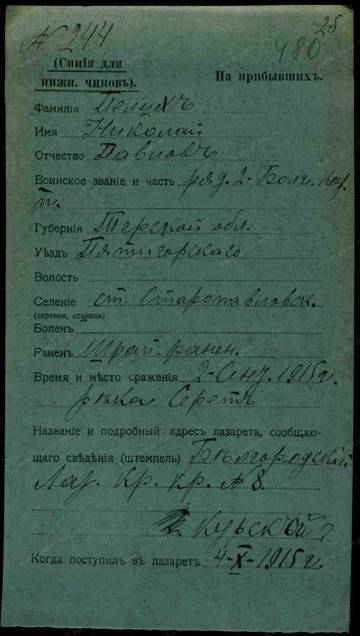 № 244 25
480
(Синія для
нижн. чиновъ). На прибывшихъ.
Фамилія Пелихъ
Имя Николай
Отчество Павловъ
Воинское званіе и часть ряд. 2-
п.
Губернія Терской обл.
Уѣздъ Пятигорскаго
Волость
Селеніе ст. Старопавловск.
(деревня, станица)
Боленъ
Раненъ ранен.
Время и мѣсто сраженія 2- 1915 г.
рѣка Серетъ
Названіе и подробный адресъ лазарета, сообщаю-
щаго свѣдѣнія (штемпель) Бѣлгородскій
Лаз. Кр. Кр. № 8.
Курской г.
Когда поступилъ въ лазаретъ 4-X-1915 г.